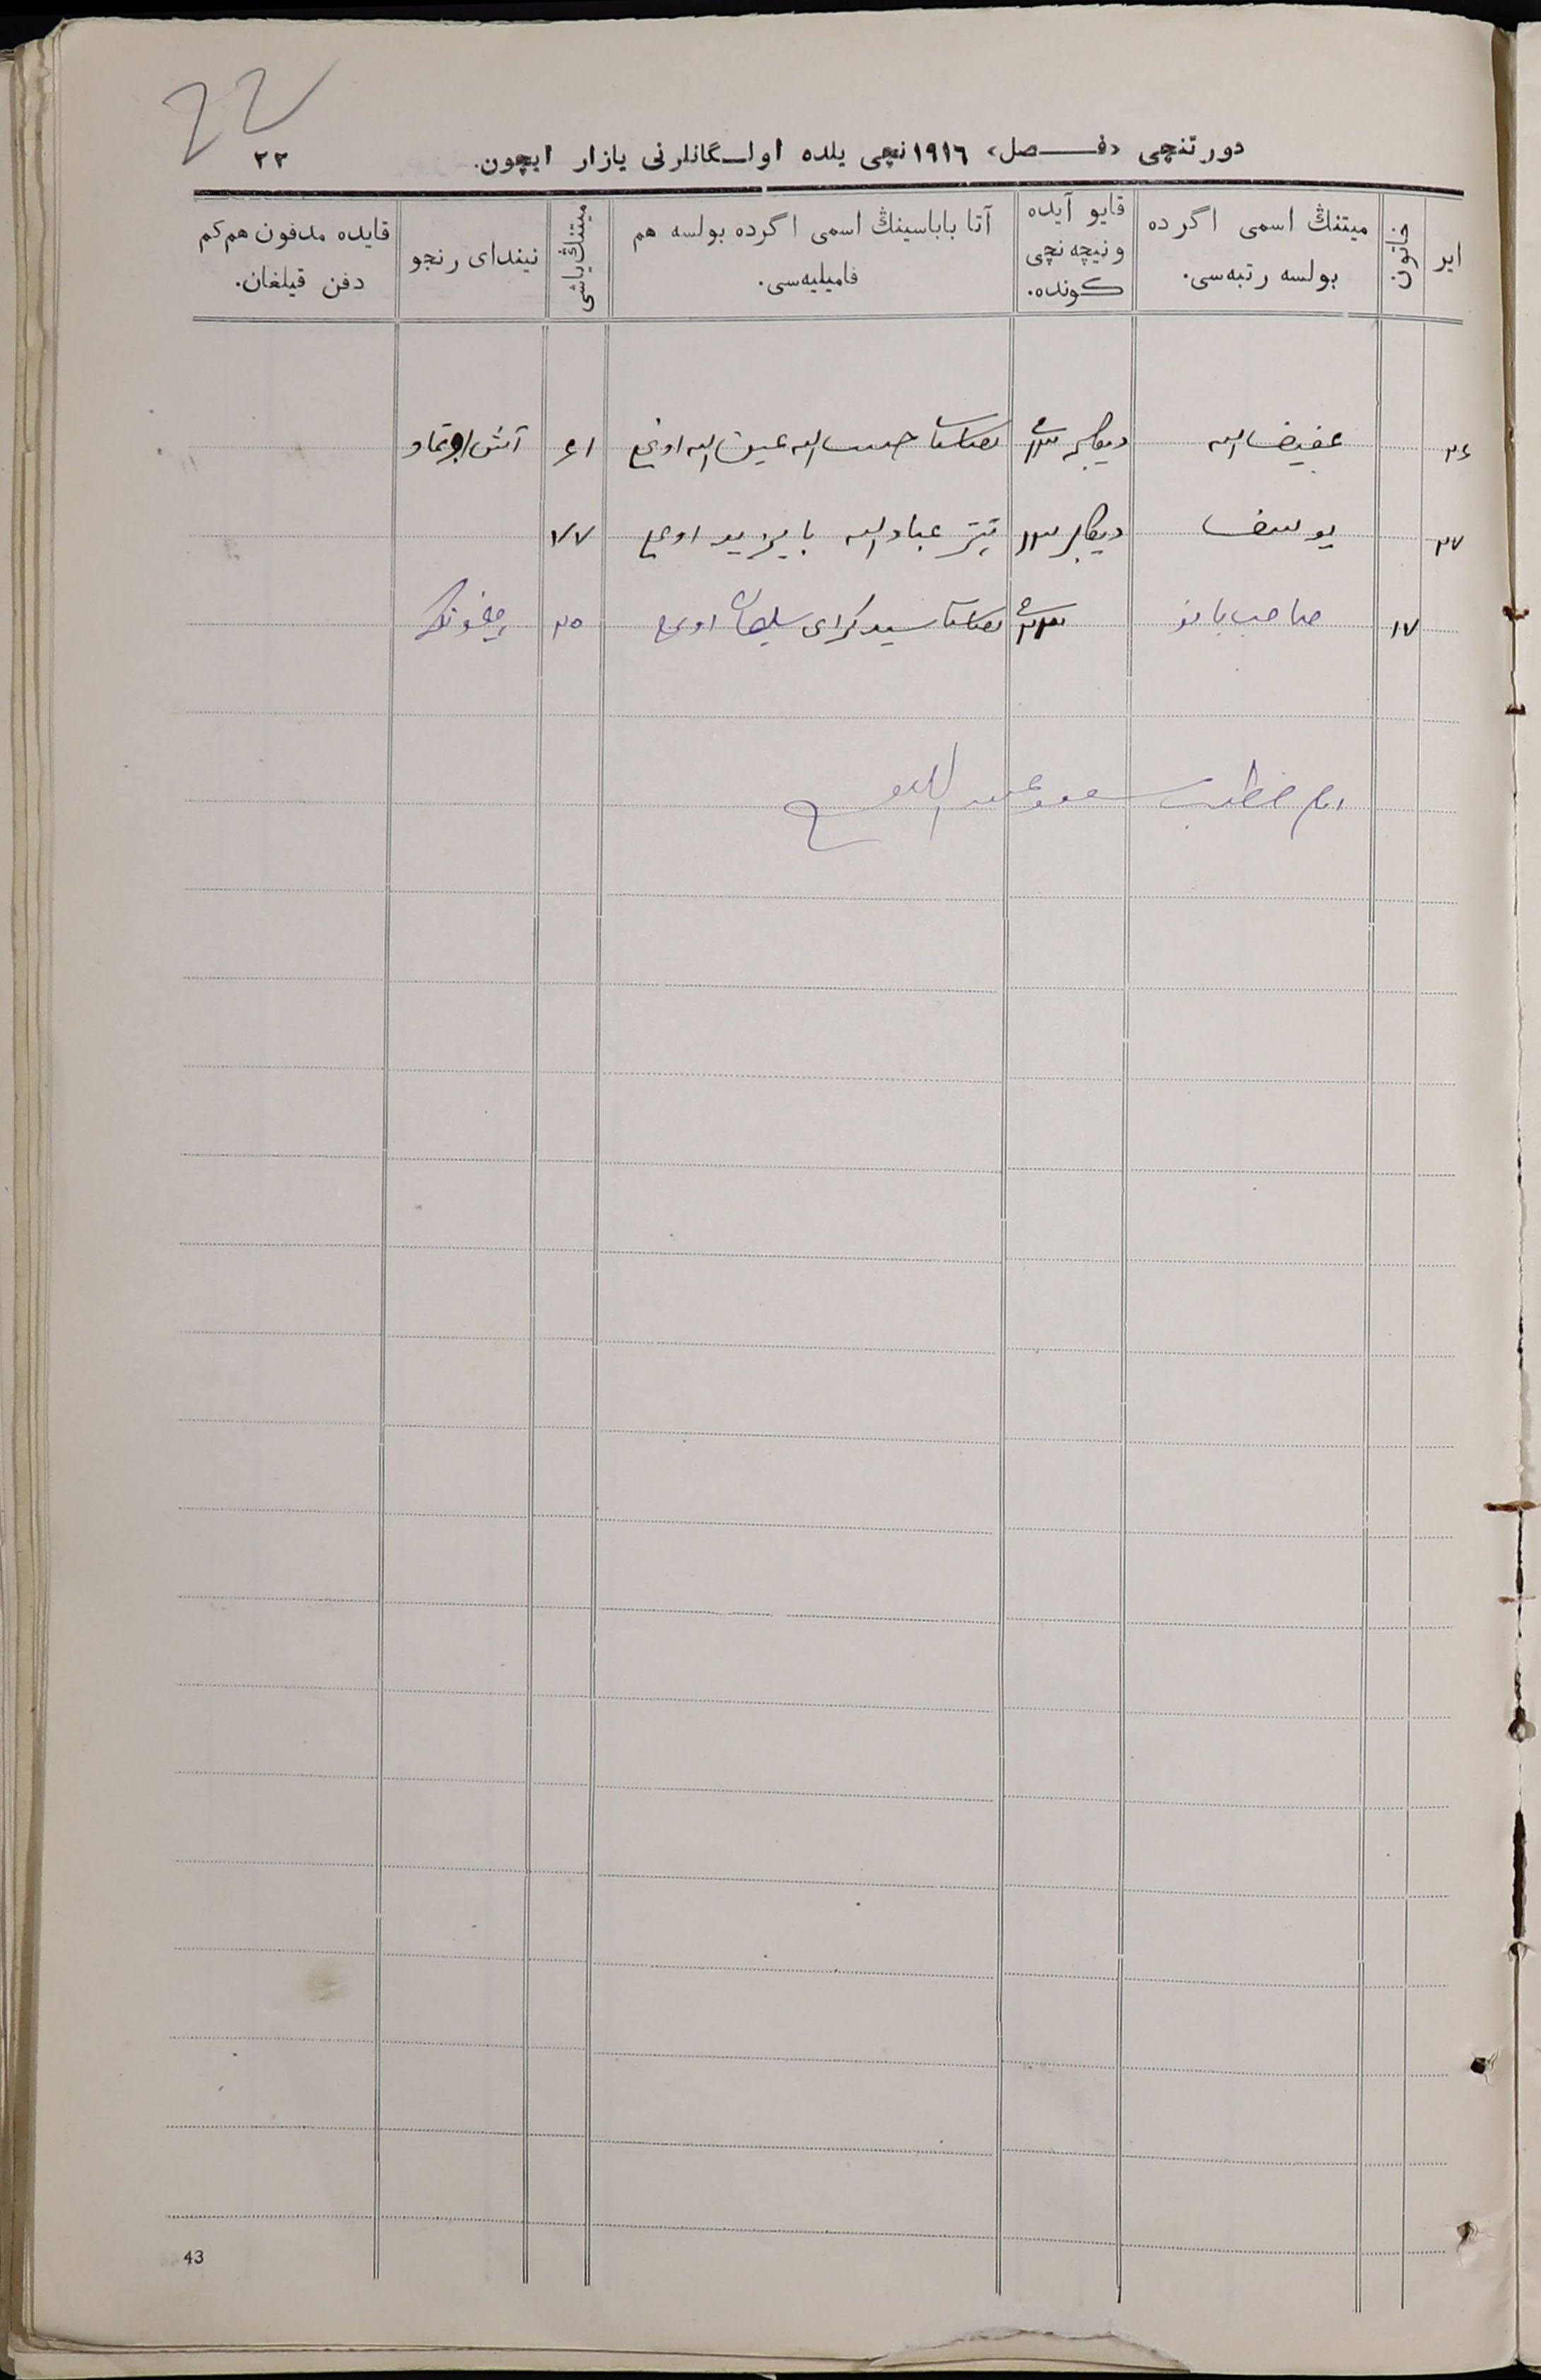 22
٢٢
دورتنچی «فـصل» ١٩١٦نچی یلده اولـگانلرنی یازار ایچون.
ایر
خاتون
میتنڭ اسمی اگرده بولسه رتبه‌سی.
قایو آیده ونیچه‌نچی کونده.
آتا باباسینڭ اسمی اگرده بولسه هم فامیلیه‌سی.
میتنڭ یاشی
نیندای رنجو
قایده مدفون هم کم دفن قیلغان.
٣٦ دیکابر حبیب الله عین الله اوغلی ٦١
٣٧ یوسف دیکابر عبادالله بایزید اوغلی ٧٧
١٧ صاحب بانو سیدکرای سلیمان اوغلی ٣٥
امام خطیب
43